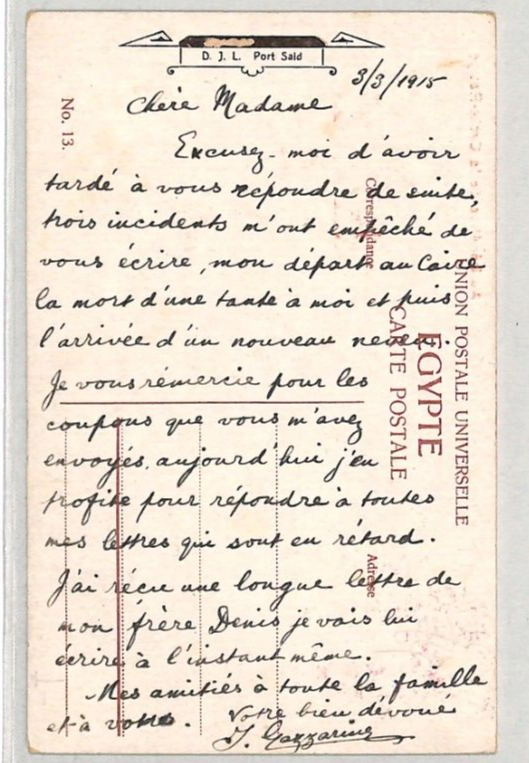 D. J. L. Port Said
3/3/1915
No. 13.
Chère Madame
Excusez-moi d'avoir
tardé à vous répondre de suite,
trois incidents m'ont empêché de
vous écrire, mon départ au Caire
la mort d'une tante à moi et puis
l'arrivée d'un nouveau neveu.
Je vous rémercie pour les
coupons que vous m'avez
envoyés, aujourd'hui j'en
profite pour répondre à toutes
mes lettres qui sont en rétard.
J'ai récu une longue lettre de
mon frère Denis je vais lui
écrire à l'instant même.
Mes amitiés à toute la famille
et à vous.
Votre bien dévoué
UNION POSTALE UNIVERSELLE
EGYPTE
CARTE POSTALE
Correspondance
Adresse